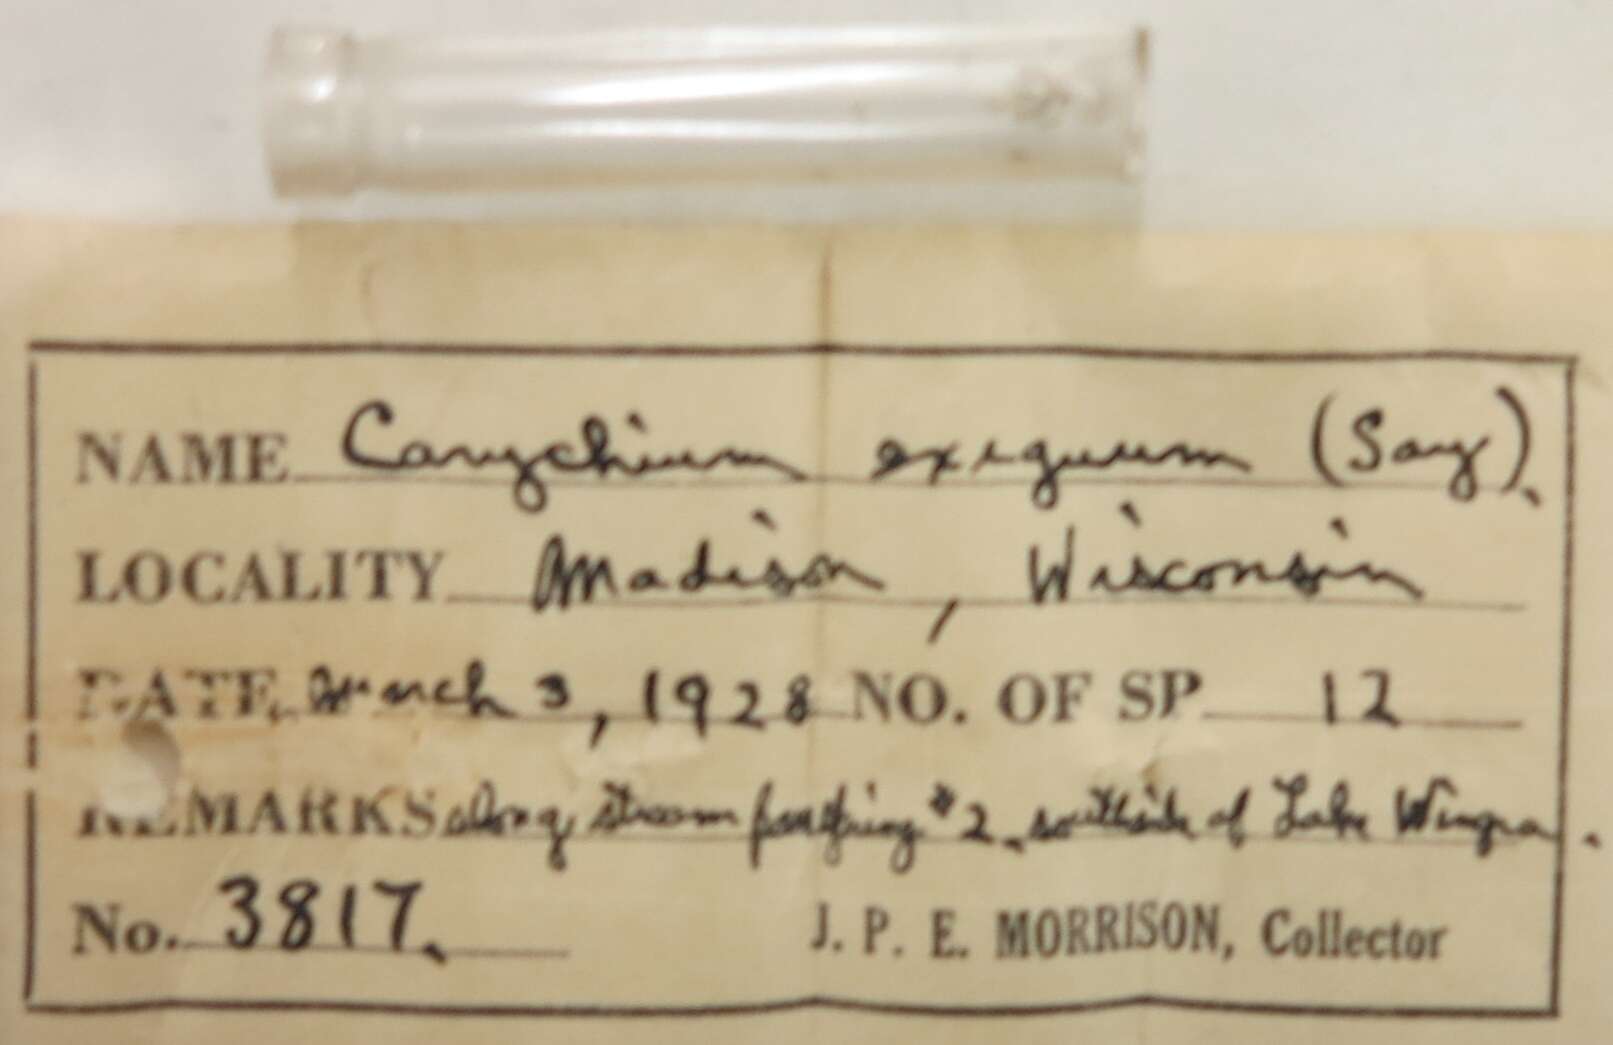 NAME Carychium exiguum (Say).
LOCALITY Madison, Wisconsin
DATE March 3, 1928 NO. OF SP. 12
REMARKS along stream from spring #2, southside of Lake Wingra.
No. 3817.
J. P. E. MORRISON, Collector